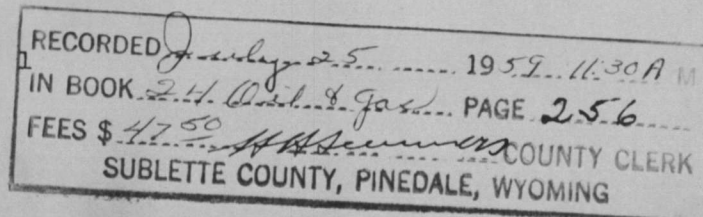 RECORDED July 25 1959 11:30 A M
IN BOOK 24 Oil & Gas PAGE 256
FEES $ 47 50 COUNTY CLERK
SUBLETTE COUNTY, PINEDALE, WYOMING